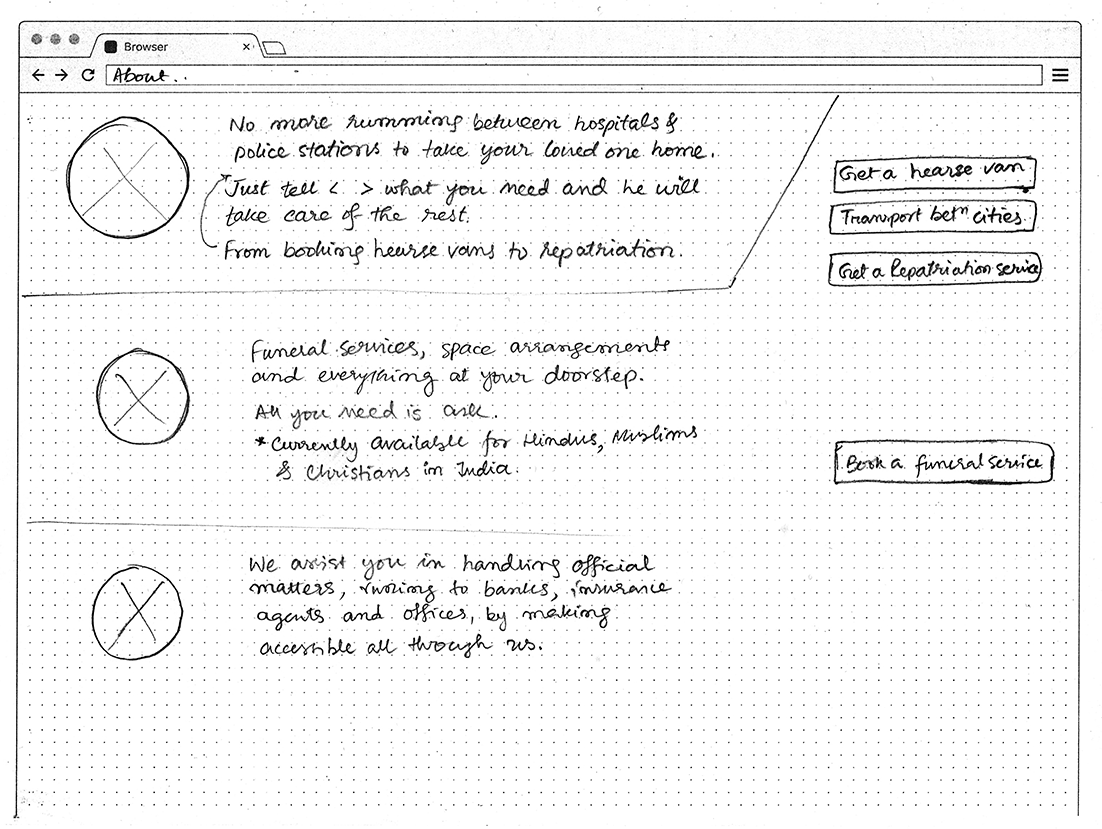 Browser
About..
No more running between hospitals &
police stations to take your loved one home.
Just tell < > what you need and he will
take care of the rest.
From booking hearse vans to repatriation.
Get a hearse van
Transport betn cities.
Get a Repatriation service
Funeral services, space arrangements
and everything at your doorstep.
All you need is ask.
*Currently available for Hindus, Muslims
& Christians in India.
Book a funeral service
We assist you in handling official
matters, to banks, insurance
agents and offices, by making
accessible all through us.